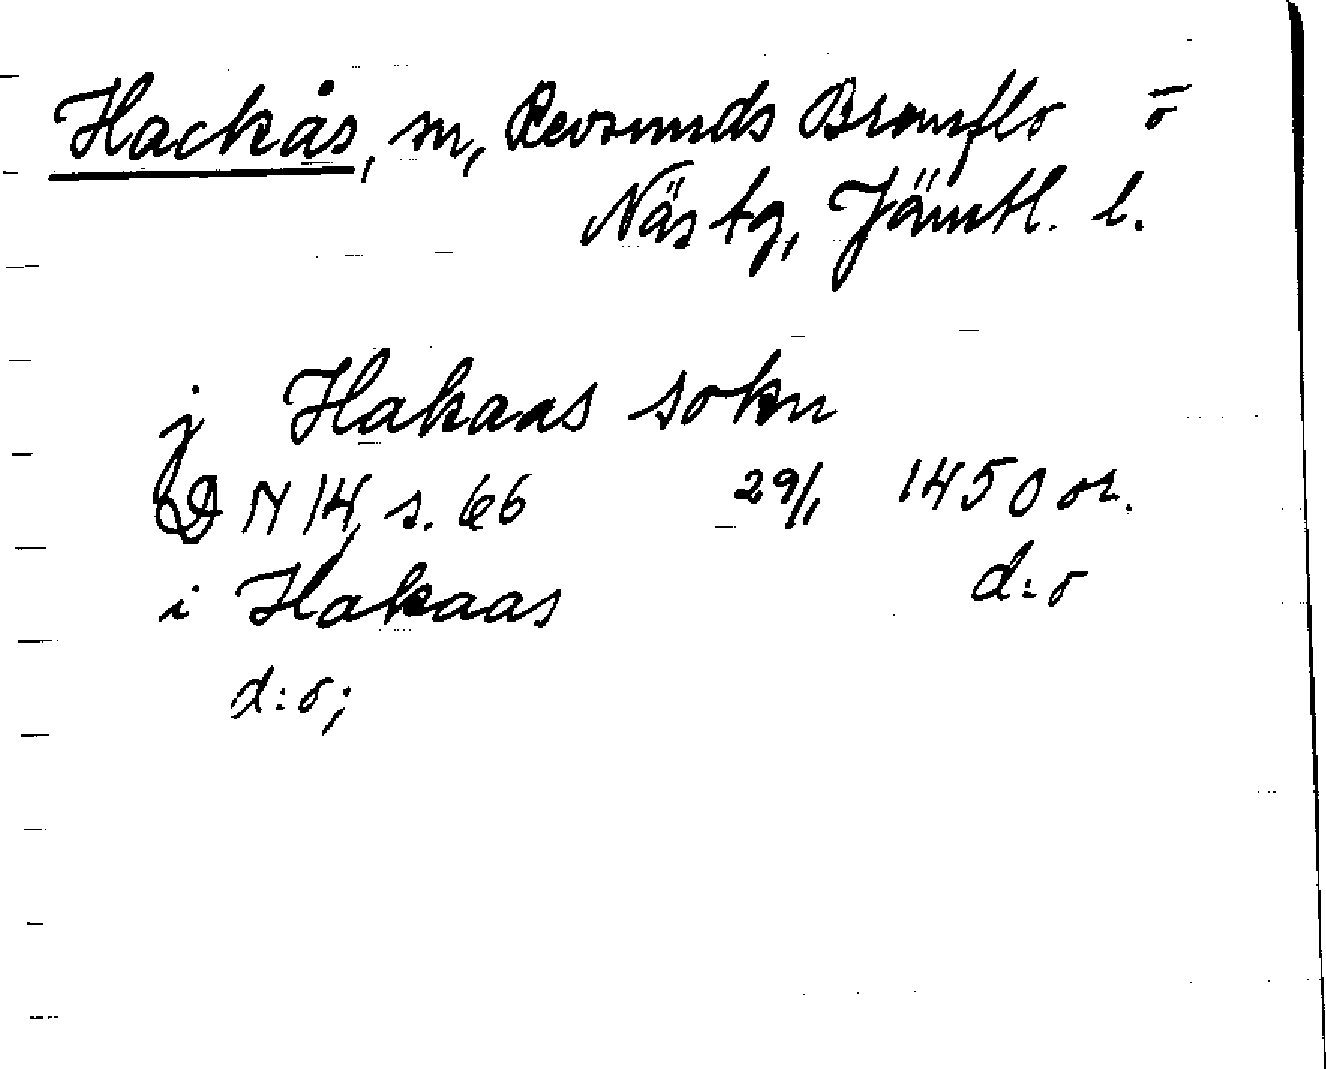 Hackås, sn, Revsunds Brunflo o
Näs tg, Jämtl. l.
j Hakaas sokn
DN 14, s. 66 29/1 1450 or.
i Hakaas d:o
d:o;